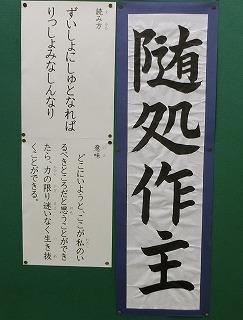 随処作主
読み方
ずいしょにしゅとなれば
りっしょみなしんなり
意味
どこにいようと、ここが私のい
るべきところだと思うことができ
たら、力の限り迷いなく生き抜
くことができる。